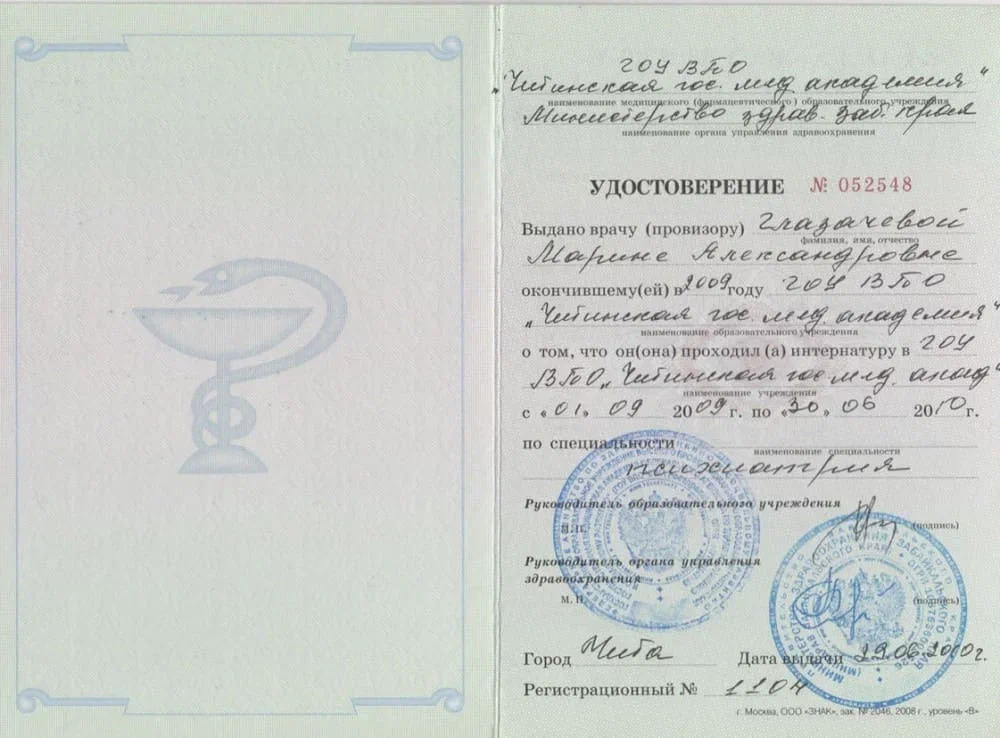 ГОУ ВПО
"Читинская гос. мед академия"
наименование медицинского (фармацевтического) образовательного учреждения
Министерство здрав. Заб. края
наименование органа управления здравоохранения
УДОСТОВЕРЕНИЕ № 052548
Выдано врачу (провизору) Глазачевой
фамилия, имя, отчество
Марине Александровне
окончившему(ей) в 2009 году ГОУ ВПО
„Читинская гос. мед. академия"
наименование образовательного учреждения
о том, что он(она) проходил (а) интернатуру в ГОУ
ВПО „Читинская гос мед. акад"
наименование учреждения
с «01» 09 2009 г. по «30» 06 2010 г.
по специальности
наименование специальности
психиатрия
Руководитель образовательного учреждения
М.П. (подпись)
Руководитель органа управления
здравоохранения
М. П. (подпись)
Город Чита Дата выдачи 29.06.2010г.
Регистрационный №
г. Москва, ООО «ЗНАК», зак. № 2046, 2008 г., уровень «В»